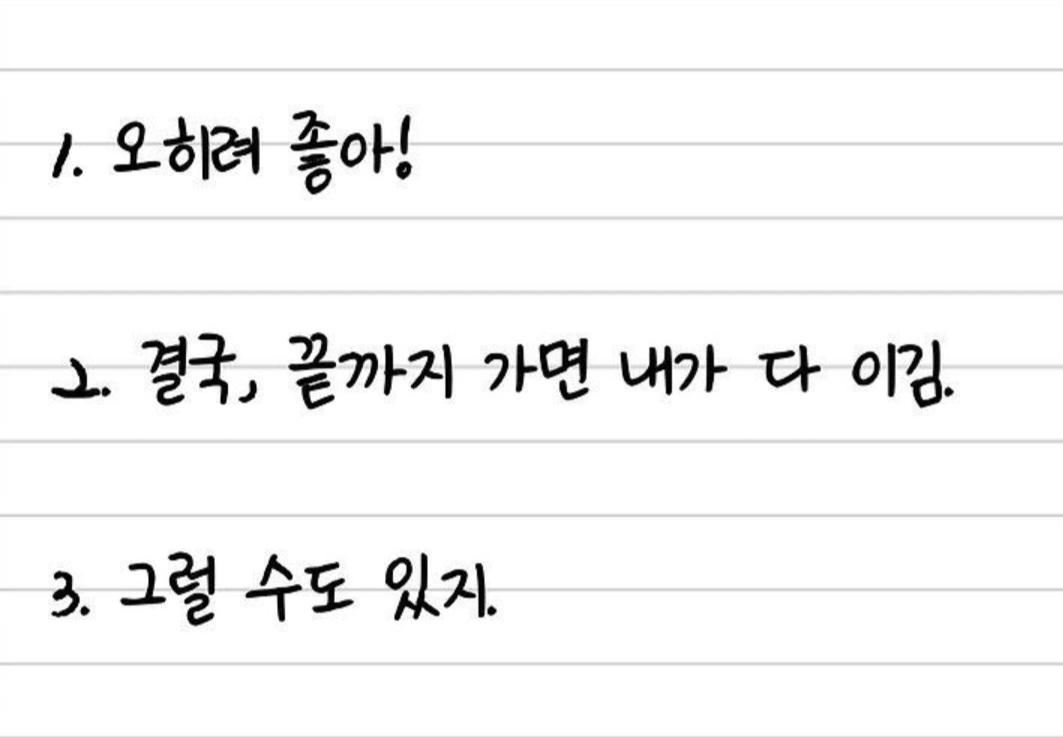 1. 오히려 좋아!
2. 결국, 끝까지 가면 내가 다 이김.
3. 그럴 수도 있지.